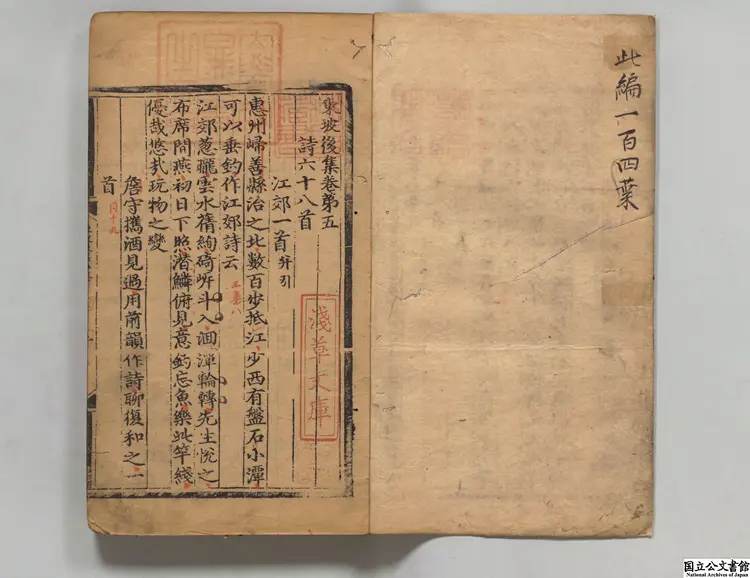 此編一百四葉
東坡後集卷第五
詩六十八首
江郊一首并引
惠州歸善縣治之北數百步抵江少西有盤石小潭
可以垂釣作江郊詩云
江郊葱曨雲水蒨絢碕岸斗入洄潭輪轉先生悅之
布席閒燕初日下照潛鱗俯見意釣忘魚樂此竿綫
優哉悠哉玩物之變
詹守攜酒見過用前韻作詩聊復和之一
首
淺草文庫
国立公文書館
National Archives of Japan